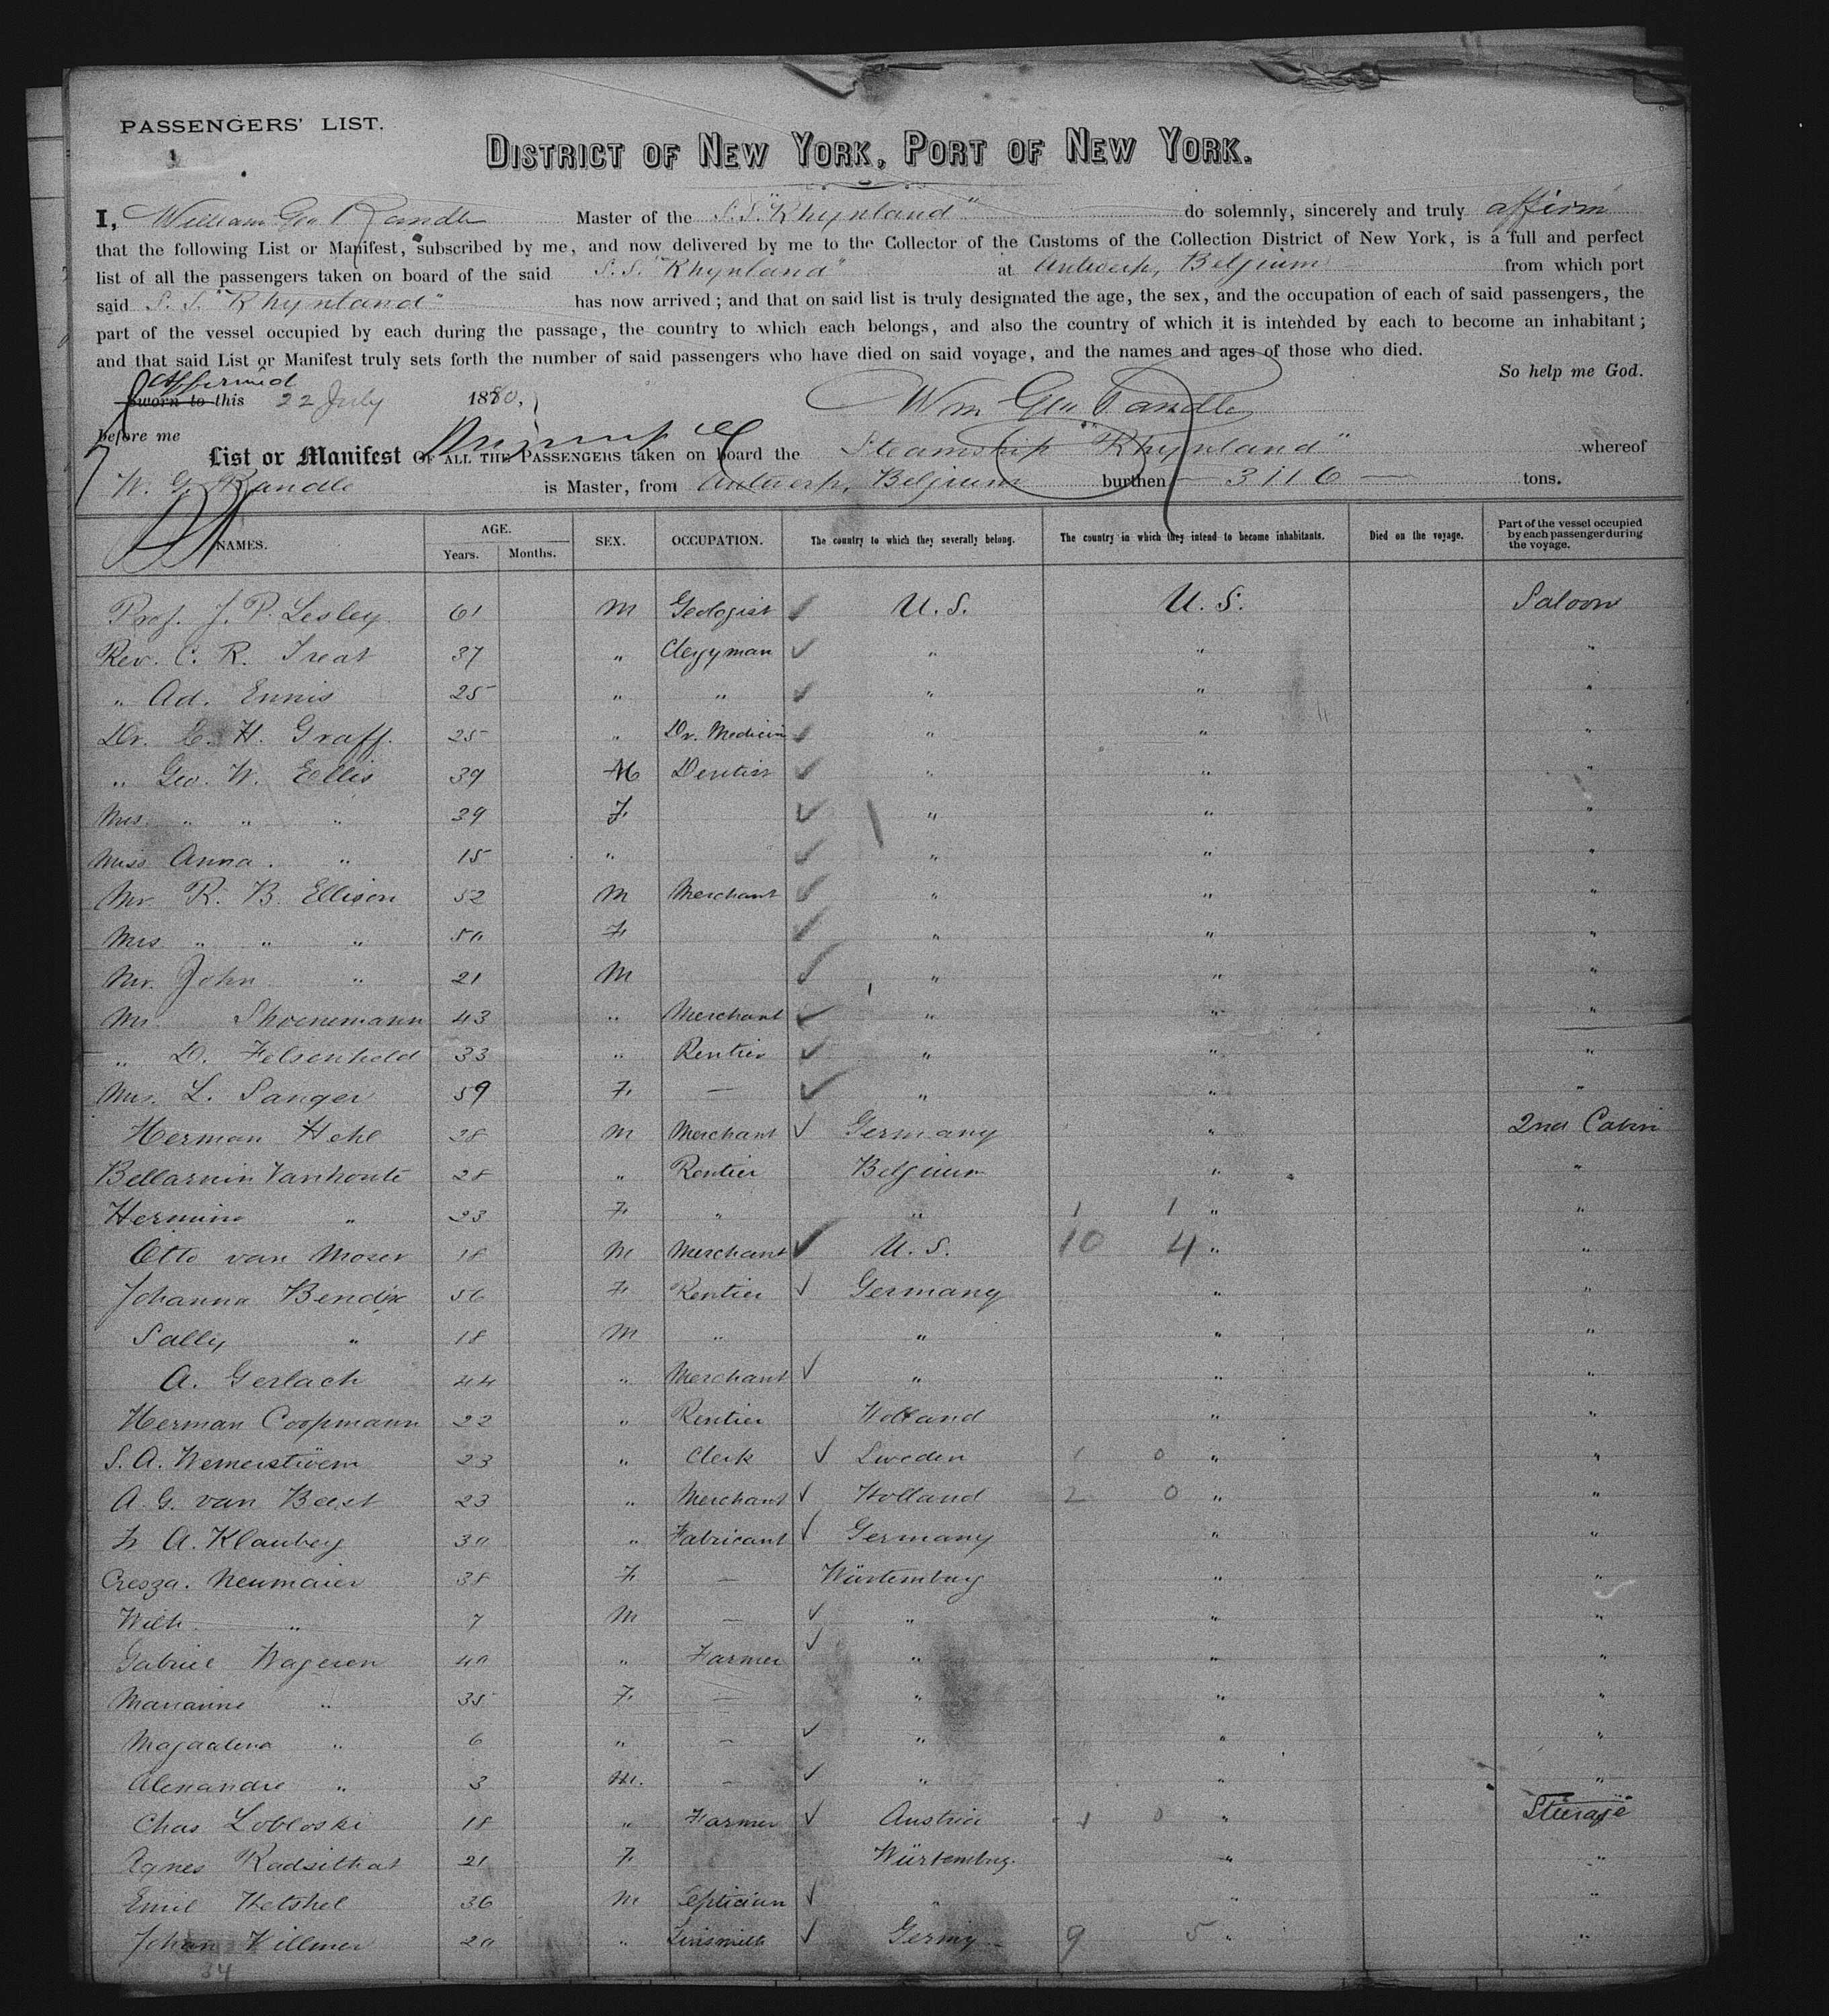 PASSENGERS' LIST.
1
DISTRICT OF NEW YORK, PORT OF NEW YORK.
I, William Geo Randle Master of the S.S. "Rhynland" do solemnly, sincerely and truly affirm
that the following List or Manifest, subscribed by me, and now delivered by me to the Collector of the Customs of the Collection District of New York, is a full and perfect
list of all the passengers taken on board of the said S.S. "Rhynland" at Antwerp, Belgium from which port
said S.S. "Rhynland" has now arrived; and that on said list is truly designated the age, the sex, and the occupation of each of said passengers, the
part of the vessel occupied by each during the passage, the country to which each belongs, and also the country of which it is intended by each to become an inhabitant;
and that said List or Manifest truly sets forth the number of said passengers who have died on said voyage, and the names and ages of those who died.
So help me God.
Affirmed
Sworn to this 22 July 1880, Wm Geo Randle
before me
List or Manifest OF ALL THE PASSENGERS taken on board the Steamship "Rhynland" whereof
W. G. Randle is Master, from Antwerp, Belgium burthen 3116 tons.
NAMES. AGE. Years. Months. SEX. OCCUPATION. The country to which they severally belong. The country in which they intend to become inhabitants. Died on the voyage. Part of the vessel occupied by each passenger during the voyage.
Prof. J. P. Lesley 61 M Geologist U. S. U. S. Saloon
Rev. C. R. Treat 37 " Clegyman " " "
" Ad. Ennis 25 " " " " "
Dr. E. H. Graff. 25 " Dr. Medicin " " "
" Geo. W. Ellis 39 M Dentist " " "
Mrs. " " " 39 F. " " "
Miss Anna. " 15 " " " "
Mr R. B. Ellison 52 M Merchant " " "
Mrs " " " 50 F. " " "
Mr. John " 21 M " " "
Mr Shoenemann 43 " Merchant " " "
" D. Felsenheld 33 " Rentier " " "
Mrs. L. Sanger 59 F. — " " "
Herman Hehl 28 M Merchant Germany " 2nd Cabin
Bellarmin Vanhoute 28 " Rentier Belgium " "
Hermine " 23 F. " " 1 1 " "
Otto van Moser 18 M Merchant U. S. 10 4 " "
Johanna Bendix 56 F. Rentier Germany " "
Sally " 18 M " " " "
A. Gerlach 44 " Merchant " " "
Herman Coopmann 22 " Rentier Holland " "
S. A. 23 " Clerk Sweden 1 0 " "
A. G. van Beest 23 " Merchant Holland 2 0 " "
A. Klauberg 30 " Fabricant Germany " "
Cresza. Neumaier 38 F. — Würtemburg " "
Wilh. " 7 M — " " "
Gabriel Wageren 40 " Farmer " " "
Marianne " 35 F. — " " "
Magdalena " 6 " — " " "
Alexandre " 3 M. — " " "
Chas Lobloski 18 " Farmer Austria 1 0 " Steerage
Agnes Radsithat 21 F. Würtembrg. " "
Emil Hetshel 36 M Optician " " "
Johan Villmer 20 " Tinsmith Germy 9 5 " "
34